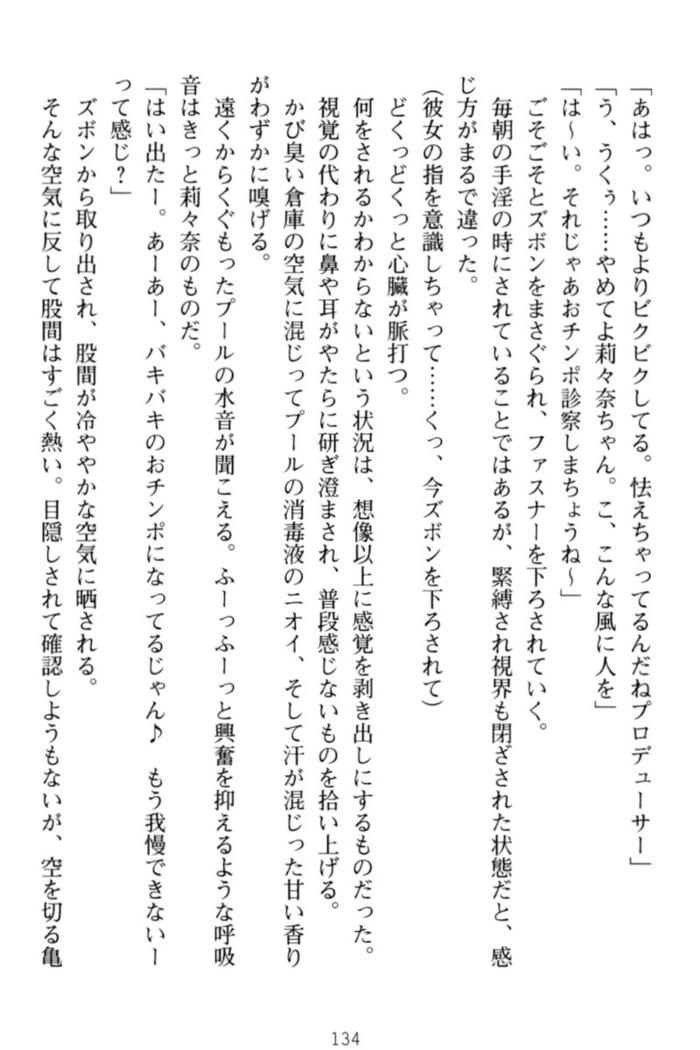 「あはっ。いつもよりビクビクしてる。怯えちゃってるんだねプロデューサー」
「う、うくぅ……やめてよ莉々奈ちゃん。こ、こんな風に人を」
「は～い。それじゃあおチンポ診察しまちょうね～」
ごそごそとズボンをまさぐられ、ファスナーを下ろされていく。
毎朝の手淫の時にされていることではあるが、緊縛され視界も閉ざされた状態だと、感
じ方がまるで違った。
(彼女の指を意識しちゃって……くっ、今ズボンを下ろされて)
どくっどくっと心臓が脈打つ。
何をされるかわからないという状況は、想像以上に感覚を剥き出しにするものだった。
視覚の代わりに鼻や耳がやたらに研ぎ澄まされ、普段感じないものを拾い上げる。
かび臭い倉庫の空気に混じってプールの消毒液のニオイ、そして汗が混じった甘い香り
がわずかに嗅げる。
遠くからくぐもったプールの水音が聞こえる。ふーっふーっと興奮を抑えるような呼吸
音はきっと莉々奈のものだ。
「はい出たー。あーあー、バキバキのおチンポになってるじゃん♪　もう我慢できないー
って感じ？」
ズボンから取り出され、股間が冷ややかな空気に晒される。
そんな空気に反して股間はすごく熱い。目隠しされて確認しようもないが、空を切る亀
134